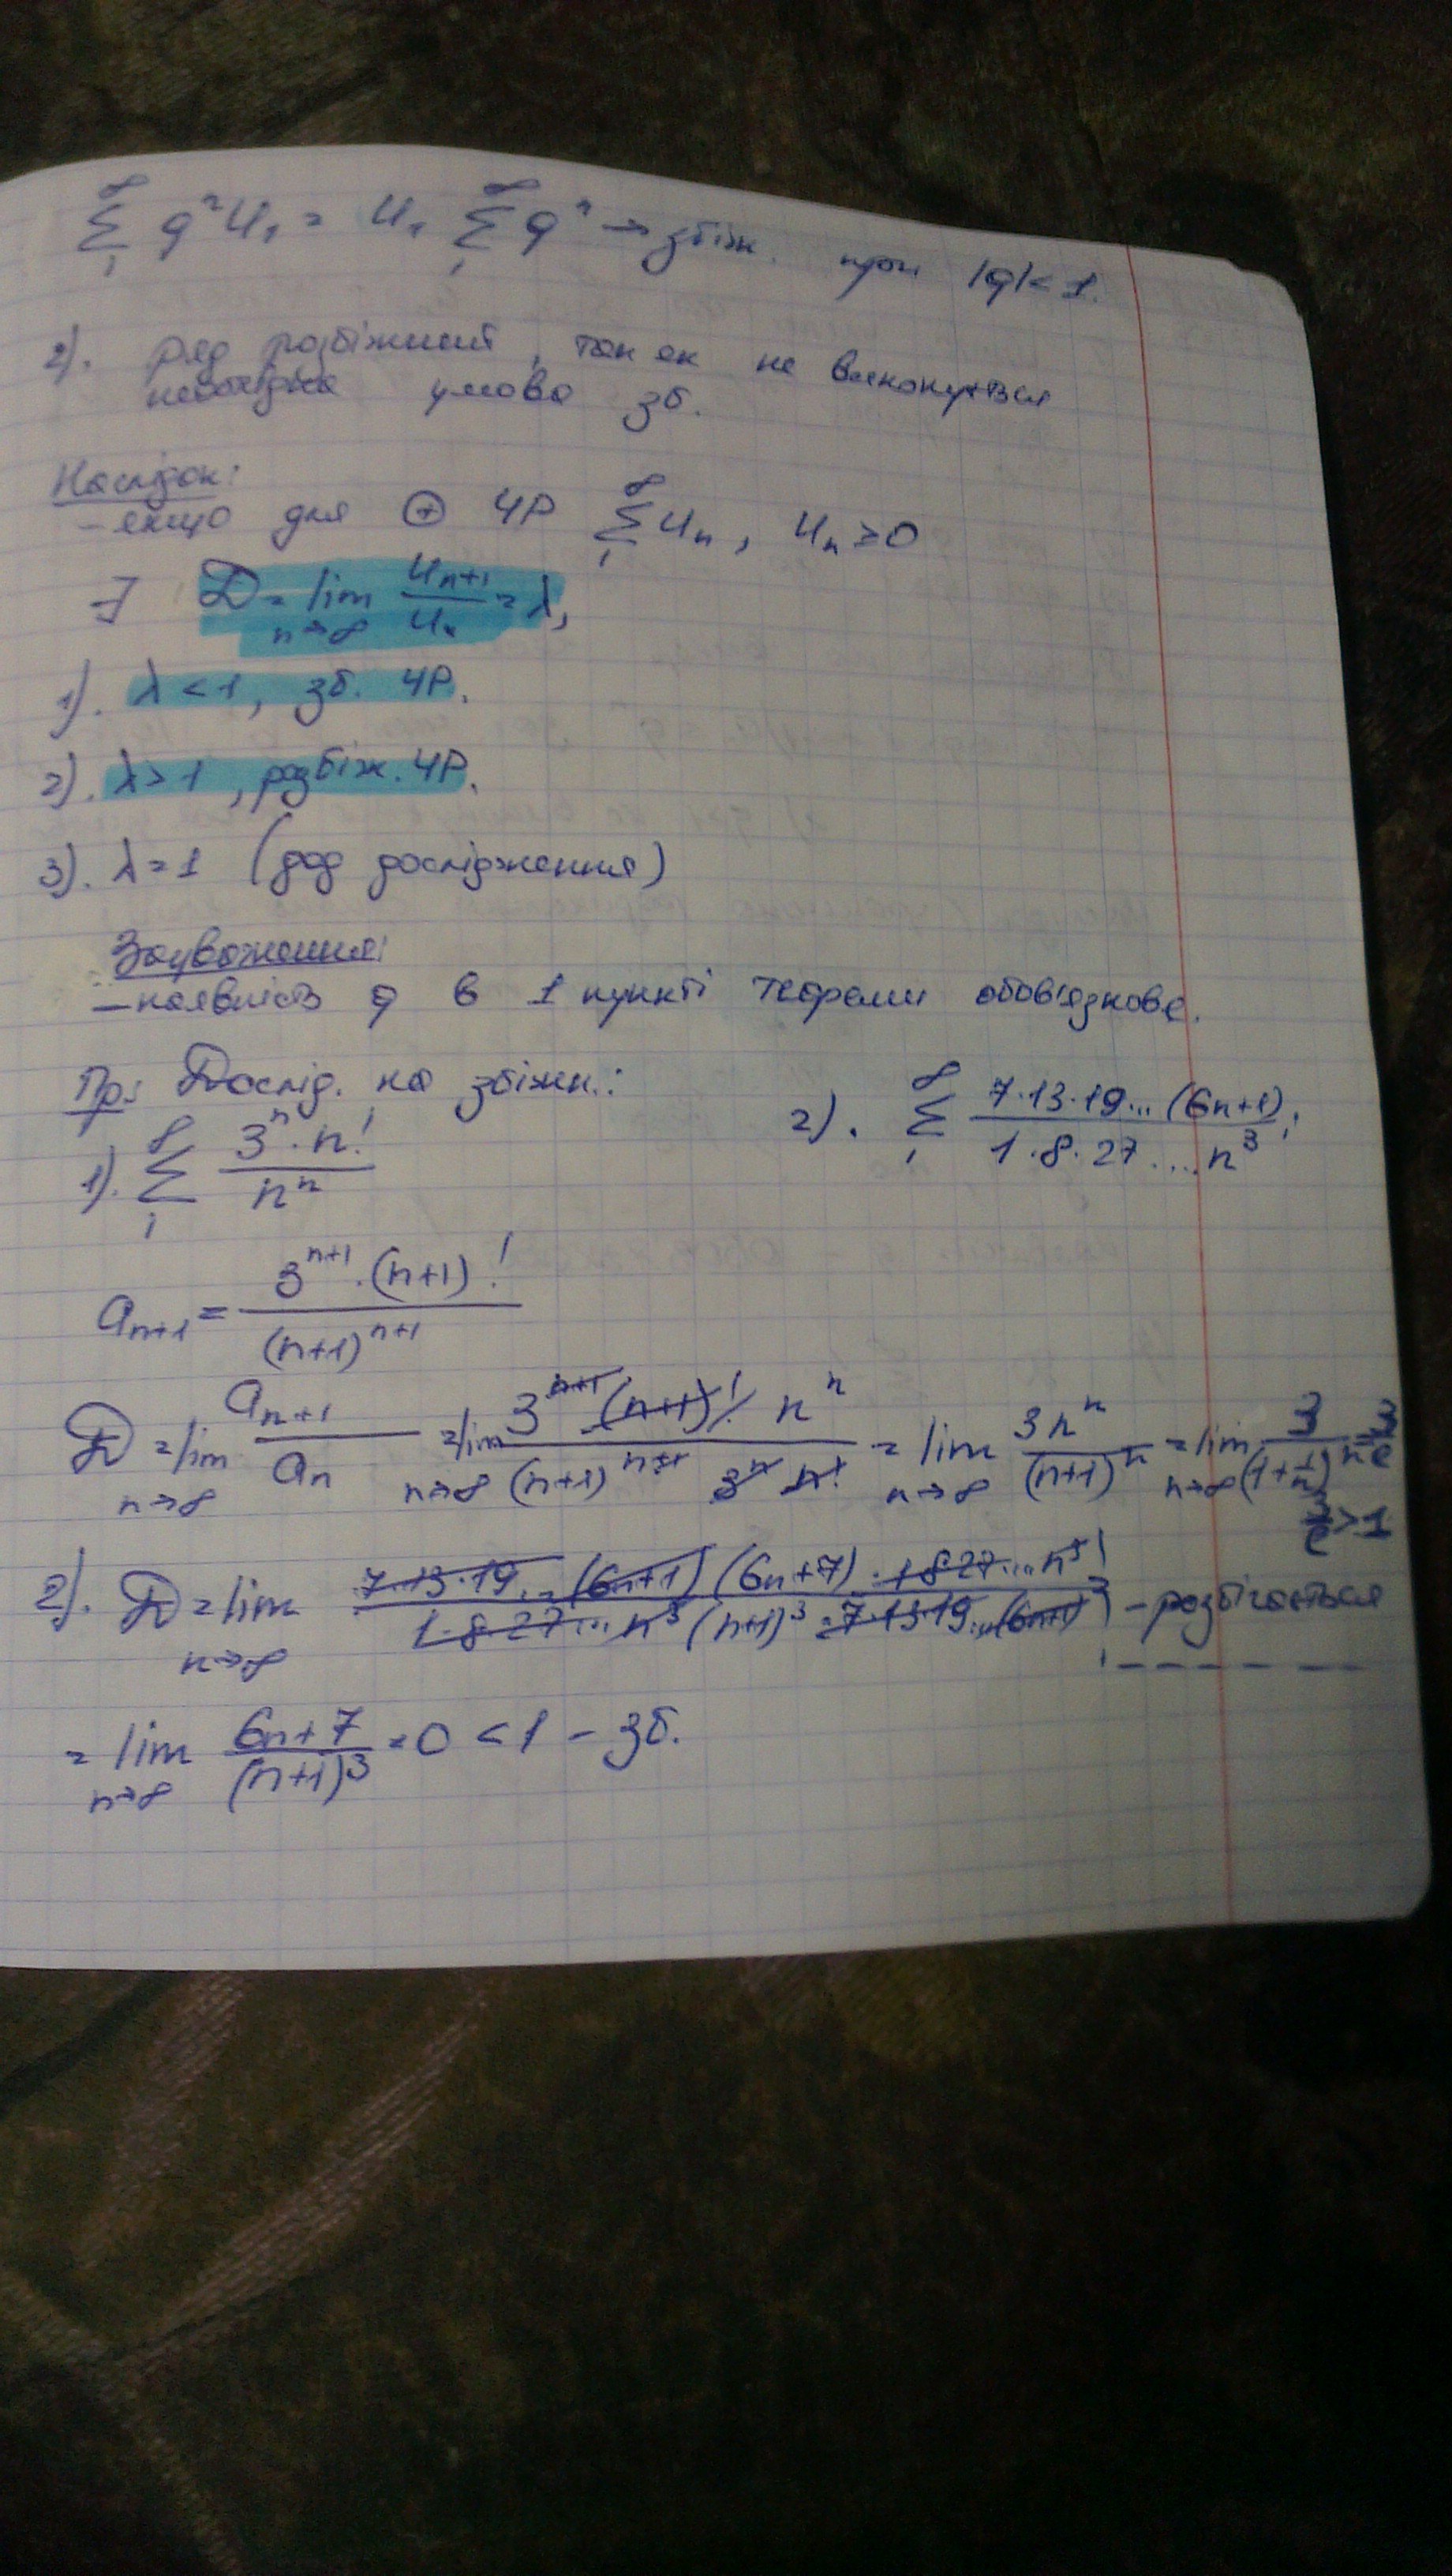 ∞ ∑ 1 qⁿu₁ = u₁ ∞ ∑ 1 qⁿ → збіж. при |q| < 1.
2). ряд розбіжний, так як не виконується
необхідна умова зб.
Наслідок:
– якщо для ⊕ ЧР ∞ ∑ 1 uₙ, uₙ ≥ 0
∃ D = lim n→∞ uₙ₊₁/uₙ = λ,
1). λ < 1, зб. ЧР.
2). λ > 1, розбіж. ЧР.
3). λ = 1 (дод дослідження)
Зауваження:
– наявність q в 1 пункті теореми обов'язкове.
Пр: Дослід. на збіжн.:
1). ∞ ∑ 1 3ⁿ · n! / nⁿ
2). ∞ ∑ 1 7·13·19...(6n+1) / 1·8·27....n³;
aₙ₊₁ = 3ⁿ⁺¹ · (n+1)! / (n+1)ⁿ⁺¹
D = lim n→∞ aₙ₊₁/aₙ = lim n→∞ 3ⁿ⁺¹ (n+1)! nⁿ / (n+1)ⁿ⁺¹ 3ⁿ n! = lim n→∞ 3nⁿ / (n+1)ⁿ = lim n→∞ 3 / (1+1/n)ⁿ = 3/e
3/e > 1
– розбігається
2). D = lim n→∞ 7·13·19...(6n+1)(6n+7) · 1·8·27...n³ / 1·8·27...n³ (n+1)³ · 7·13·19...(6n+1) =
= lim n→∞ 6n+7 / (n+1)³ = 0 < 1 – зб.